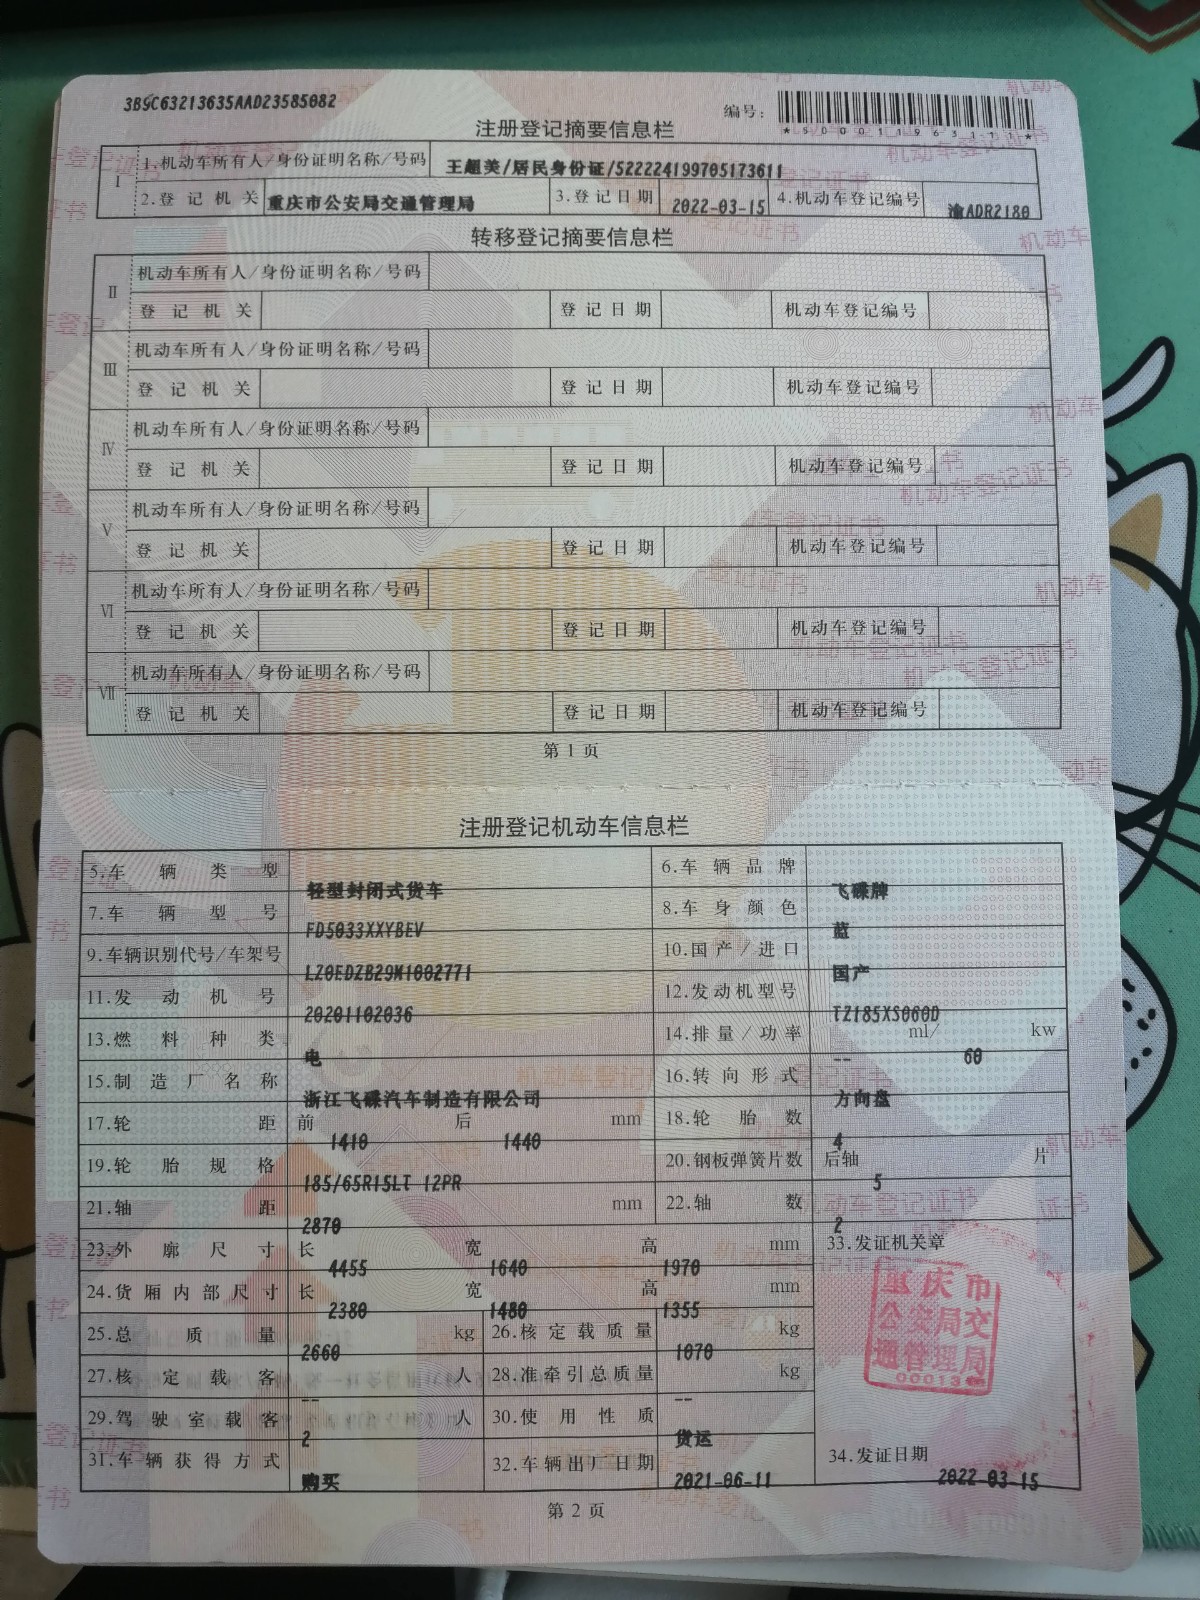 3B9C63213635AAD23585082
编号：
*500011963171*
注册登记摘要信息栏
I 1.机动车所有人/身份证明名称/号码 王超美/居民身份证/522224199705173611
2.登记机关 重庆市公安局交通管理局 3.登记日期 2022-03-15 4.机动车登记编号 渝ADR2180
转移登记摘要信息栏
II 机动车所有人/身份证明名称/号码
登记机关 登记日期 机动车登记编号
III 机动车所有人/身份证明名称/号码
登记机关 登记日期 机动车登记编号
IV 机动车所有人/身份证明名称/号码
登记机关 登记日期 机动车登记编号
V 机动车所有人/身份证明名称/号码
登记机关 登记日期 机动车登记编号
VI 机动车所有人/身份证明名称/号码
登记机关 登记日期 机动车登记编号
VII 机动车所有人/身份证明名称/号码
登记机关 登记日期 机动车登记编号
第 1 页
注册登记机动车信息栏
5.车辆类型 轻型封闭式货车 6.车辆品牌 飞碟牌
7.车辆型号 FD5033XXYBEV 8.车身颜色 蓝
9.车辆识别代号/车架号 LZ0EDZB29M1002771 10.国产/进口 国产
11.发动机号 20201102036 12.发动机型号 TZ185XS060D
13.燃料种类 电 14.排量/功率 -- ml/ 60 kw
15.制造厂名称 浙江飞碟汽车制造有限公司 16.转向形式 方向盘
17.轮距 前 1410 后 1440 mm 18.轮胎数 4
19.轮胎规格 185/65R15LT 12PR 20.钢板弹簧片数 后轴 5 片
21.轴距 2870 mm 22.轴数 2
23.外廓尺寸 长 4455 宽 1640 高 1970 mm 33.发证机关章
24.货厢内部尺寸 长 2380 宽 1480 高 1355 mm
重庆市公安局交通管理局
25.总质量 2660 kg 26.核定载质量 1070 kg
27.核定载客 -- 人 28.准牵引总质量 -- kg
29.驾驶室载客 2 人 30.使用性质 货运
31.车辆获得方式 购买 32.车辆出厂日期 2021-06-11 34.发证日期 2022-03-15
第 2 页